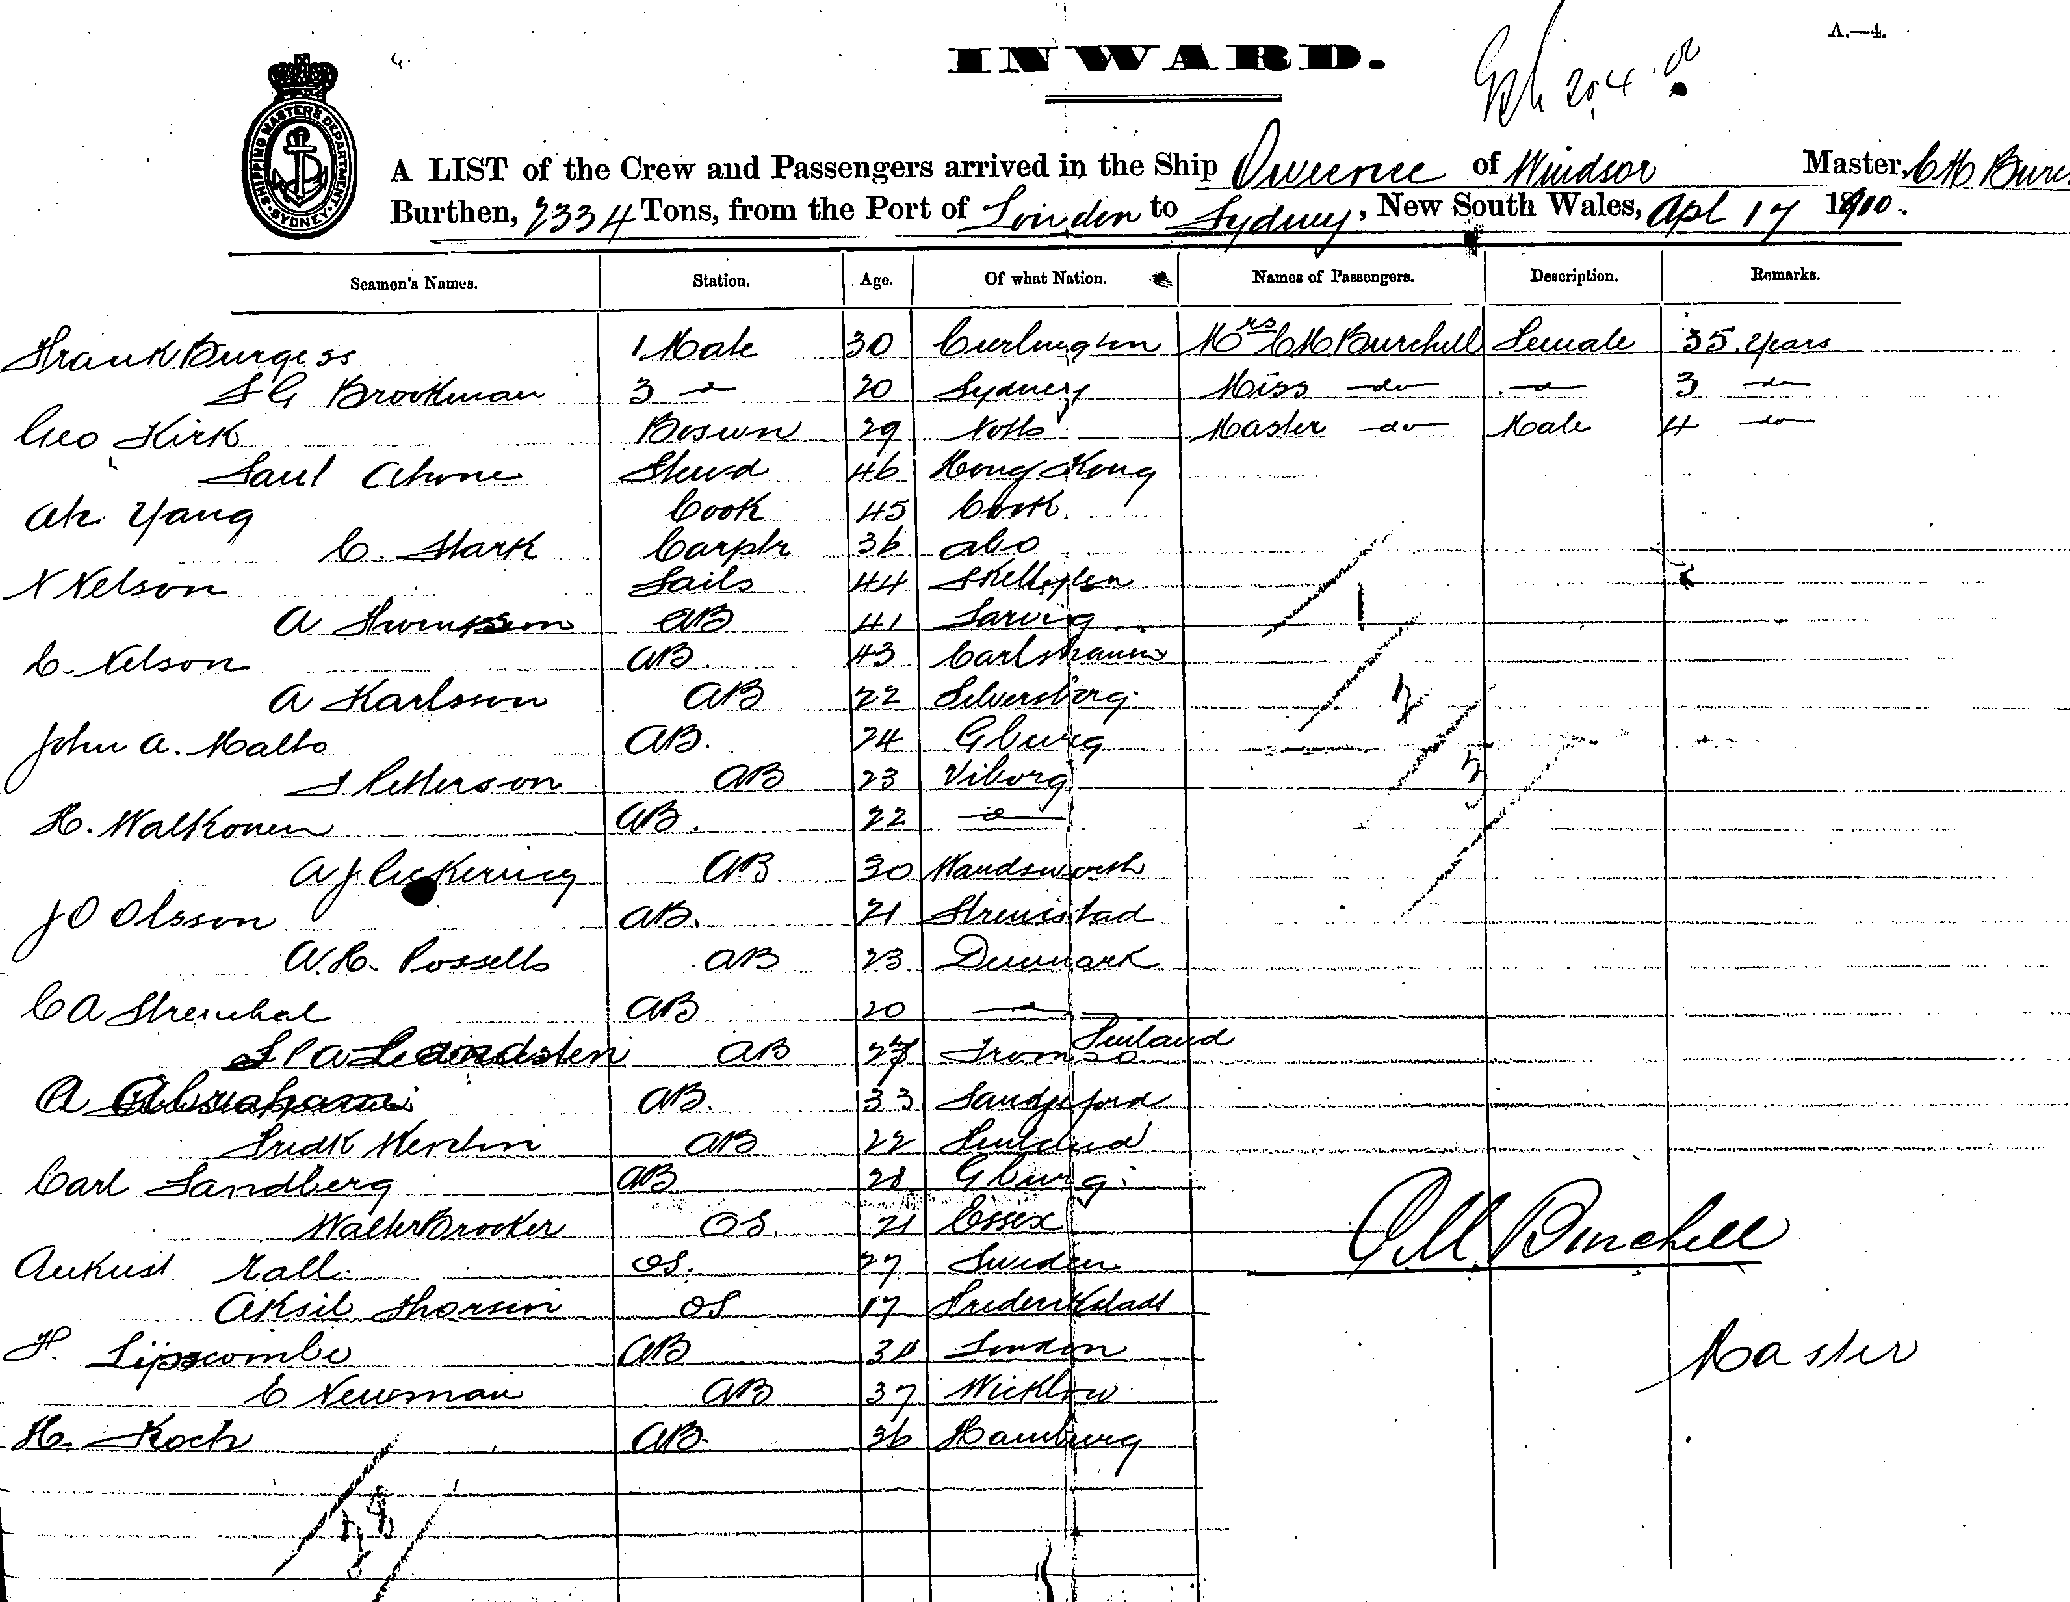 INWARD.
A.—4.
SHIPPING MASTER'S DEPARTMENT SYDNEY
A LIST of the Crew and Passengers arrived in the Ship of Windsor Master, C M Burc
Burthen, 2334 Tons, from the Port of London to Sydney, New South Wales, Apl 17 1910.
Seamen's Names. Station. Age. Of what Nation. Names of Passengers. Description. Remarks.
Frank Burgess 1 Mate 30 Mrs C M Burchell Female 35 years
S G Brookman 3 do 20 Sydney Miss do do 3 do
Geo Kirk Bosun 29 Notts Master do Male 4 do
Saul Ahone Stewd 46 Hong Kong
Ah Yang Cook 45 Cook
C. Stark Carptr 36 Abo
N Nelson Sails 44
A AB 41
C. Nelson AB 43
A Karlsson AB 22 Silversberg
John A. Malto AB. 24 Gburg
Petterson AB 23 Viborg
H. Walkonen AB. 22 do
A J Pickering AB 30 Wandsworth
J O Olsson AB. 21 Stromstad
A. H. Possells AB 23 Denmark
C A AB 20
AB Tromso Finland
A Abrahams AB. 33 Sandjeford
Fredk AB 22
Carl Sandberg AB 28 Gburg
Walter Brooker OS. 21 Essex
August Rall OS. 27 Sweden
Aksil Thorsen OS 17 Frederikstadt
H. Lipscombe AB London
C Newman AB 37 Wicklow
H. Koch AB 36 Hamburg
1
2
3
28
C M Burchell
Master